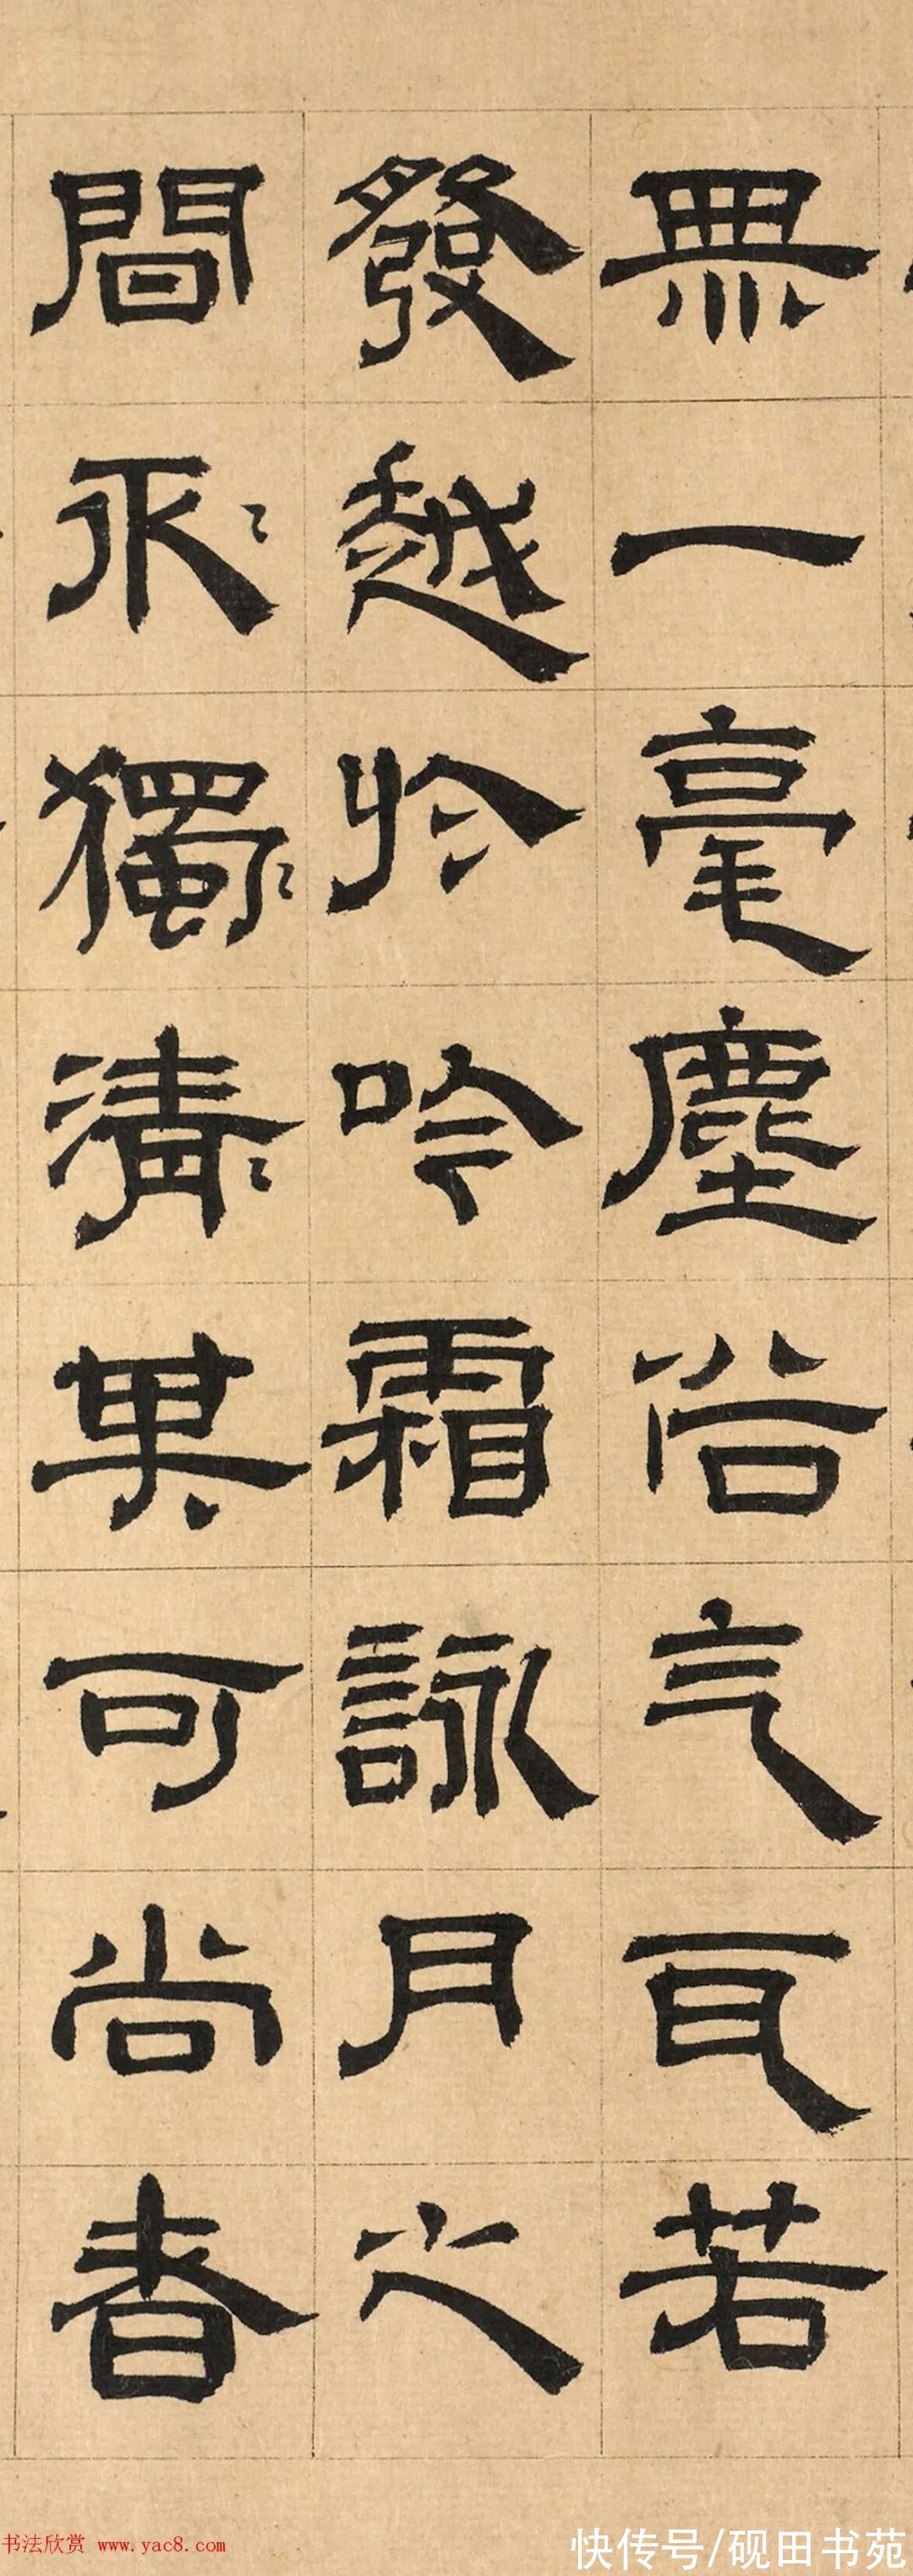 無一毫塵俗气耳若
發越於吟霜詠月之
間〻獨〻清〻可尚者
书法欣赏 www.yac8.com
快传号/砚田书苑